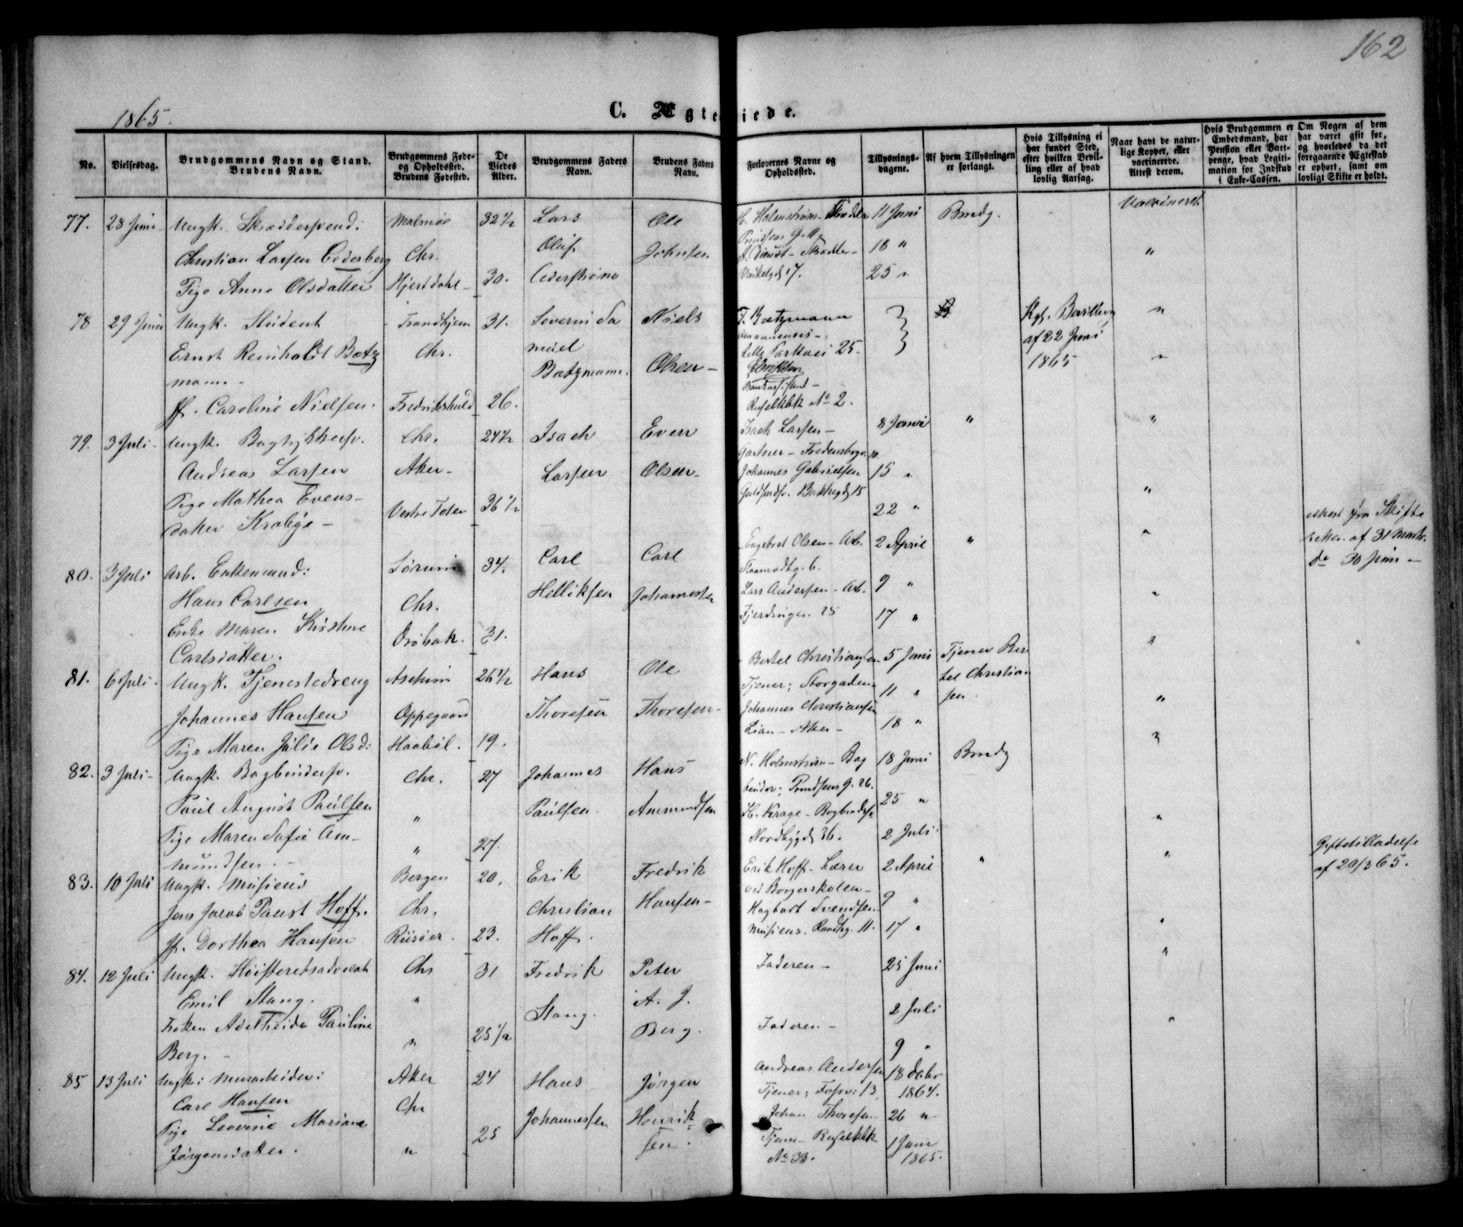 162
1865.
C. Ægteviede.
No.
Vielsesdag.
Brudgommens Navn og Stand.
Brudens Navn.
Brudgommens Føde-
og Opholdssted.
Brudens Fødested.
De
Viedes
Alder.
Brudgommens Faders
Navn.
Brudens Faders
Navn.
Forlovernes Navne og
Opholdssted.
Tillysnings-
dagene.
Af hvem Tillysningen
er forlangt.
Hvis Tillysning ei
har fundet Sted,
efter hvilken Bevil-
ling eller af hvad
lovlig Aarsag.
Naar havt de natur-
lige Kopper, eller
vaccinerede.
Attest derom.
Hvis Brudgommen er
Embedsmand, har
Pension eller Vart-
penge, hvad Legiti-
mation for Indskud
i Enke-Cassen.
Om Nogen af dem
har været gift før,
og hvorledes da det
foregaaende Ægteskab
er ophørt, samt om
lovligt Skifte er holdt.
77. 28 Juni Ungk. Skræddersvend: Malmøe 32 1/2 Lars Ole H. Holmstrøm 11 Juni Brudg. Vaccineret
Christian Larsen Cederberg Chr. Oluf Johnsen 18 "
Pige Anne Olsdatter Hjertdahl 30. Cederstrøm 25 "
78 29 Juni Ungk. Student Trondhjem 31. Severin Sa Niels F. Bætzmann Kgl. Bevilling "
Ernst Reinholdt Bætz Chr. muel Lille 25. af 22 Juni
mann Bætzmann. Olsen 1865 "
Jf. Caroline Nielsen. Fredrikshald 26. Ruseløkk No 2.
79. 3 Juli Ungk. Chr. 24 1/2 Isach Even Isach Larsen 8 Januar " "
Andreas Larsen Aker Larsen Olsen Gartner
Johannes Gabrielsen 15 "
Pige Mathea Evens- Vestre Toten 36 1/2 22 " "
datter Krabye
Attest fra Skifte
retten af 31 Marts
do 30 Juni
80. 3 Juli Arb. Enkemand: Sørum 34. Carl Carl Engebret Olsen Arb. 2 April " "
Hans Carlsen Chr. Helliksen Johannesen Lars Andersen Arb. 9 "
Enke Maren Kirstine Drøbak. 31. Fjerdingen 25 17 " "
Carlsdatter.
81. 6 Juli Ungk. Tjenestedreng Askim 26 1/2 Hans Ole Bertel Christiansen 5 Juni Tjener Ber
Tjener; Storgaden 11 " tel Christian
Johannes Hansen Oppegaard Thoresen Thoresen Johannes Christiansen sen "
Pige Maren Julie Olsd: Haabøl. 19. Lian Aker 18 "
82. 3 Juli Ungk. Bogbindersv. Chr. 27 Johannes Hans N. Holmstrøm Bog 18 Juni Brudg
binder; 26.
Paul August Paulsen " Paulsen Ammundsen H. Krage Bogbinders 25 "
Pige Maren Sofie Am- " 27. 36. 2 Juli
mundsen.
83. 10 Juli Ungk. Musicus Bergen 20. Erik Fredrik Erik Hoff Lærer 2 April " Giftetilladelse
ved Borgerskolen af 20/3 65.
Jens Jacob Faust Hoff. Chr. Christian Hansen Hagbart Svendsen 9 "
Jf. Dorthea Hansen Risøer. 23. Hoff. Musicus. 11. 17 "
84. 12 Juli Ungk. Høisteretsadvokat Chr 31 Fredrik Peter Faderen 25 Juni "
Emil Stang. " Stang. A. J. 2 Juli
Frøken Adelheide Pauline " 25 1/2 Berg. Faderen 9 " "
Berg.
85 13 Juli Ungk: Murarbeider: Aker 24 Hans Jørgen Andreas Andersen 18 Debr
Tjener; 13 1864.
Carl Hansen Chr Johannessen Henrik Johan Thoresen 26 "
Pige Leovine Mariane " 25 sen. Tjener Ruseløkk 1 Janr
Jørgensdatter. No 33. 1865.